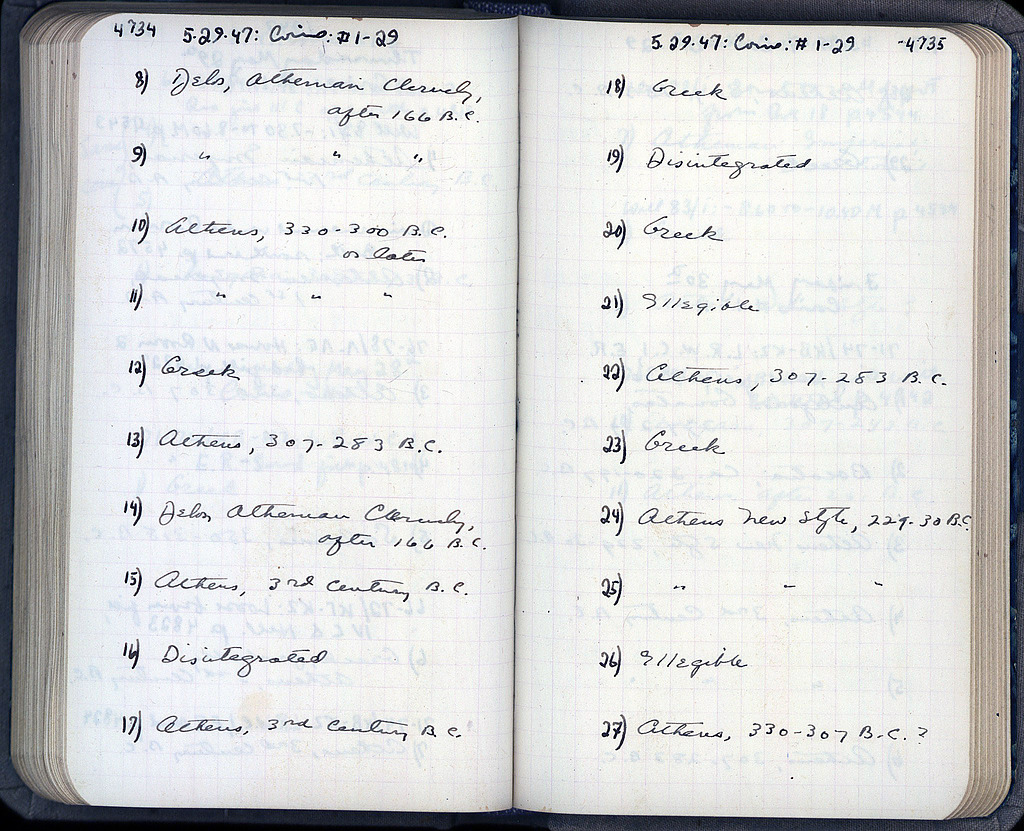 4734 5.29.47: Coins: #1-29
8) Delos, Athenian Cleruchy,
after 166 B.C.
9) " " "
10) Athens, 330-300 B.C.
or later
11) " " "
12) Greek
13) Athens, 307-283 B.C.
14) Delos, Athenian Cleruchy,
after 166 B.C.
15) Athens, 3rd Century B.C.
16) Disintegrated
17) Athens, 3rd Century B.C.
5.29.47: Coins: #1-29 -4735
18) Greek
19) Disintegrated
20) Greek
21) Illegible
22) Athens, 307-283 B.C.
23) Greek
24) Athens New Style, 229-30 B.C.
25) " " "
26) Illegible
27) Athens, 330-307 B.C.?